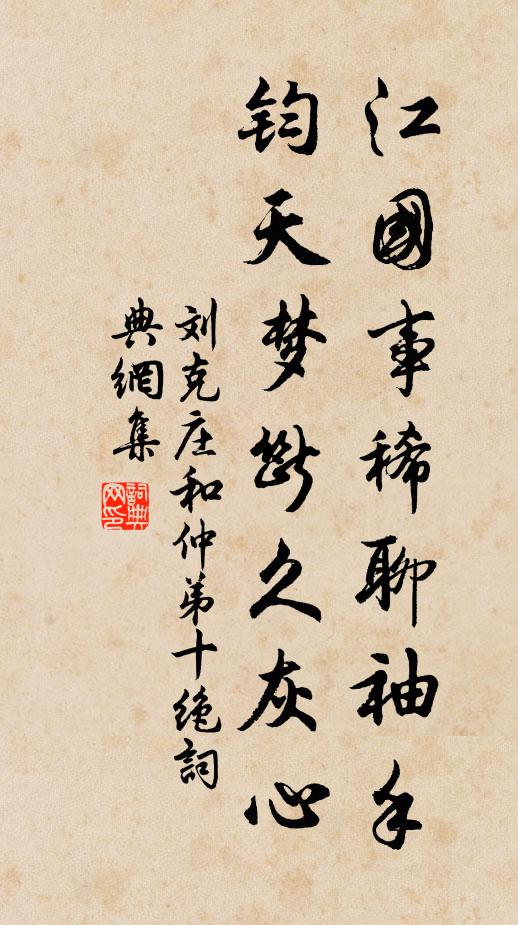 江國事稀聊袖手
钧天梦断久灰心
刘克庄和仲弟十绝詞
典網集
詞典
网印